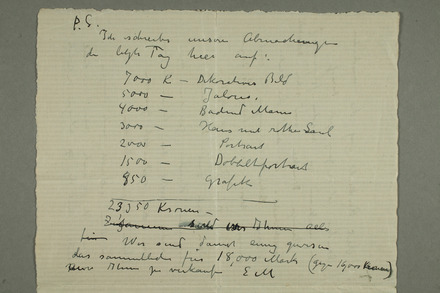 P.S.
Ich schreibe unsere Abmachungen
die letzte Tag hier auf:
7000 K — Dekoratives Bild
5000 — Jalousi,
4000 — Badende Männer
3000 — Haus und rothe
2000 — Portrait
1500 — Dobbeltportrait
850 — Grafik
23,350 Kronen —
Zusammen
Wir sind damit einig gewesen
das sammtliche für 18,000 Mark (gegen 19,000 Kronen)
zu verkaufen E M